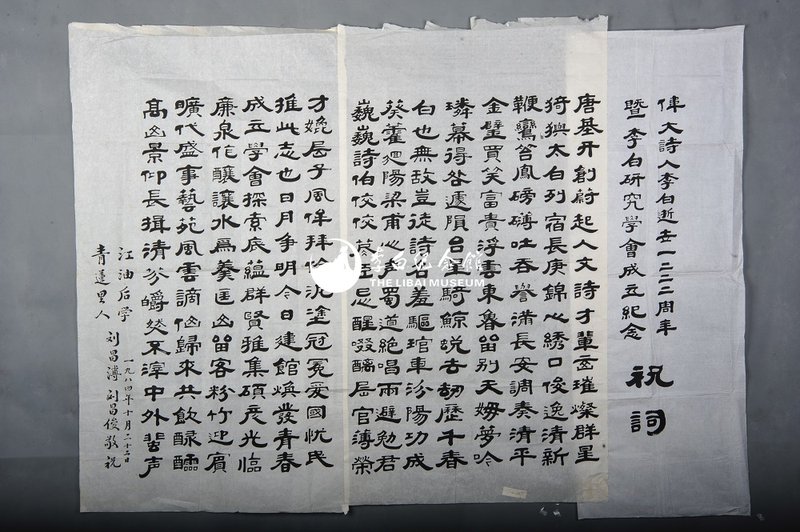 偉大詩人李白逝去一二二二周年
暨李白研究學會成立紀念
祝詞
唐基开創蔚起人文詩才輩出璀燦群星
猗歟太白列宿長庚錦心綉口俊逸清新
鞭鸞笞鳳磅礴吐吞譽滿長安調奏清平
金璧買笑富貴浮雲東魯留別天姥夢吟
璘幕得咎遽隕台星騎鯨蛻去劫歷千春
白也無敵豈徒詩名羞驅琯車汾陽功成
葵藿廻陽梁甫心声蜀道絶唱兩避勉君
巍巍詩伯佼佼至忌醒啜醨居官溥榮
才媲屈子風侔拜倫泥塗冠冕愛國忧民
推此志也日月争明今日建館焕發青春
成立學會探索底蘊群賢雅集碩彥光临
廉泉作釀讓水爲羹匡山留客粉竹迎賓
曠代盛事藝苑風雲謫仙歸來共飲醁醽
高山景仰長揖清芬皭然不滓中外蜚声
江油后学
青蓮里人
刘昌溥刘昌俊敬祝
一九八四年十月二十二日
李白纪念館
THE LIBAI MUSEUM